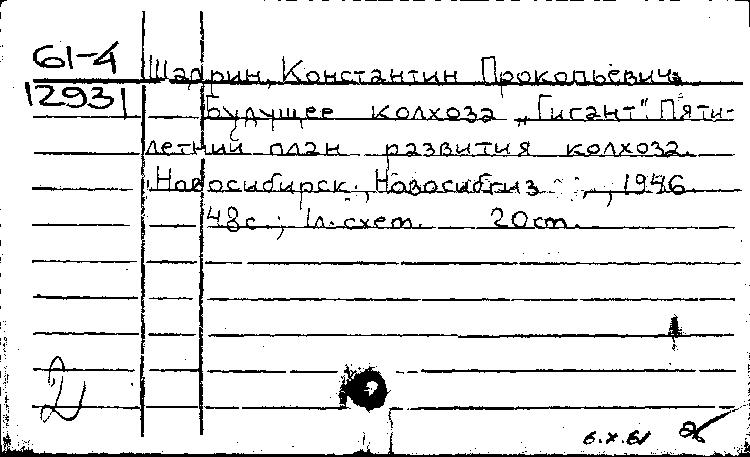 61-4
12931
Шадрин, Константин Прокопьевич.
Будущее колхоза „Гигант". Пяти-
летний план развития колхоза.
Новосибирск, Новосибгиз, 1946.
48с.; 1л. схем. 20см.
2
6.X.61